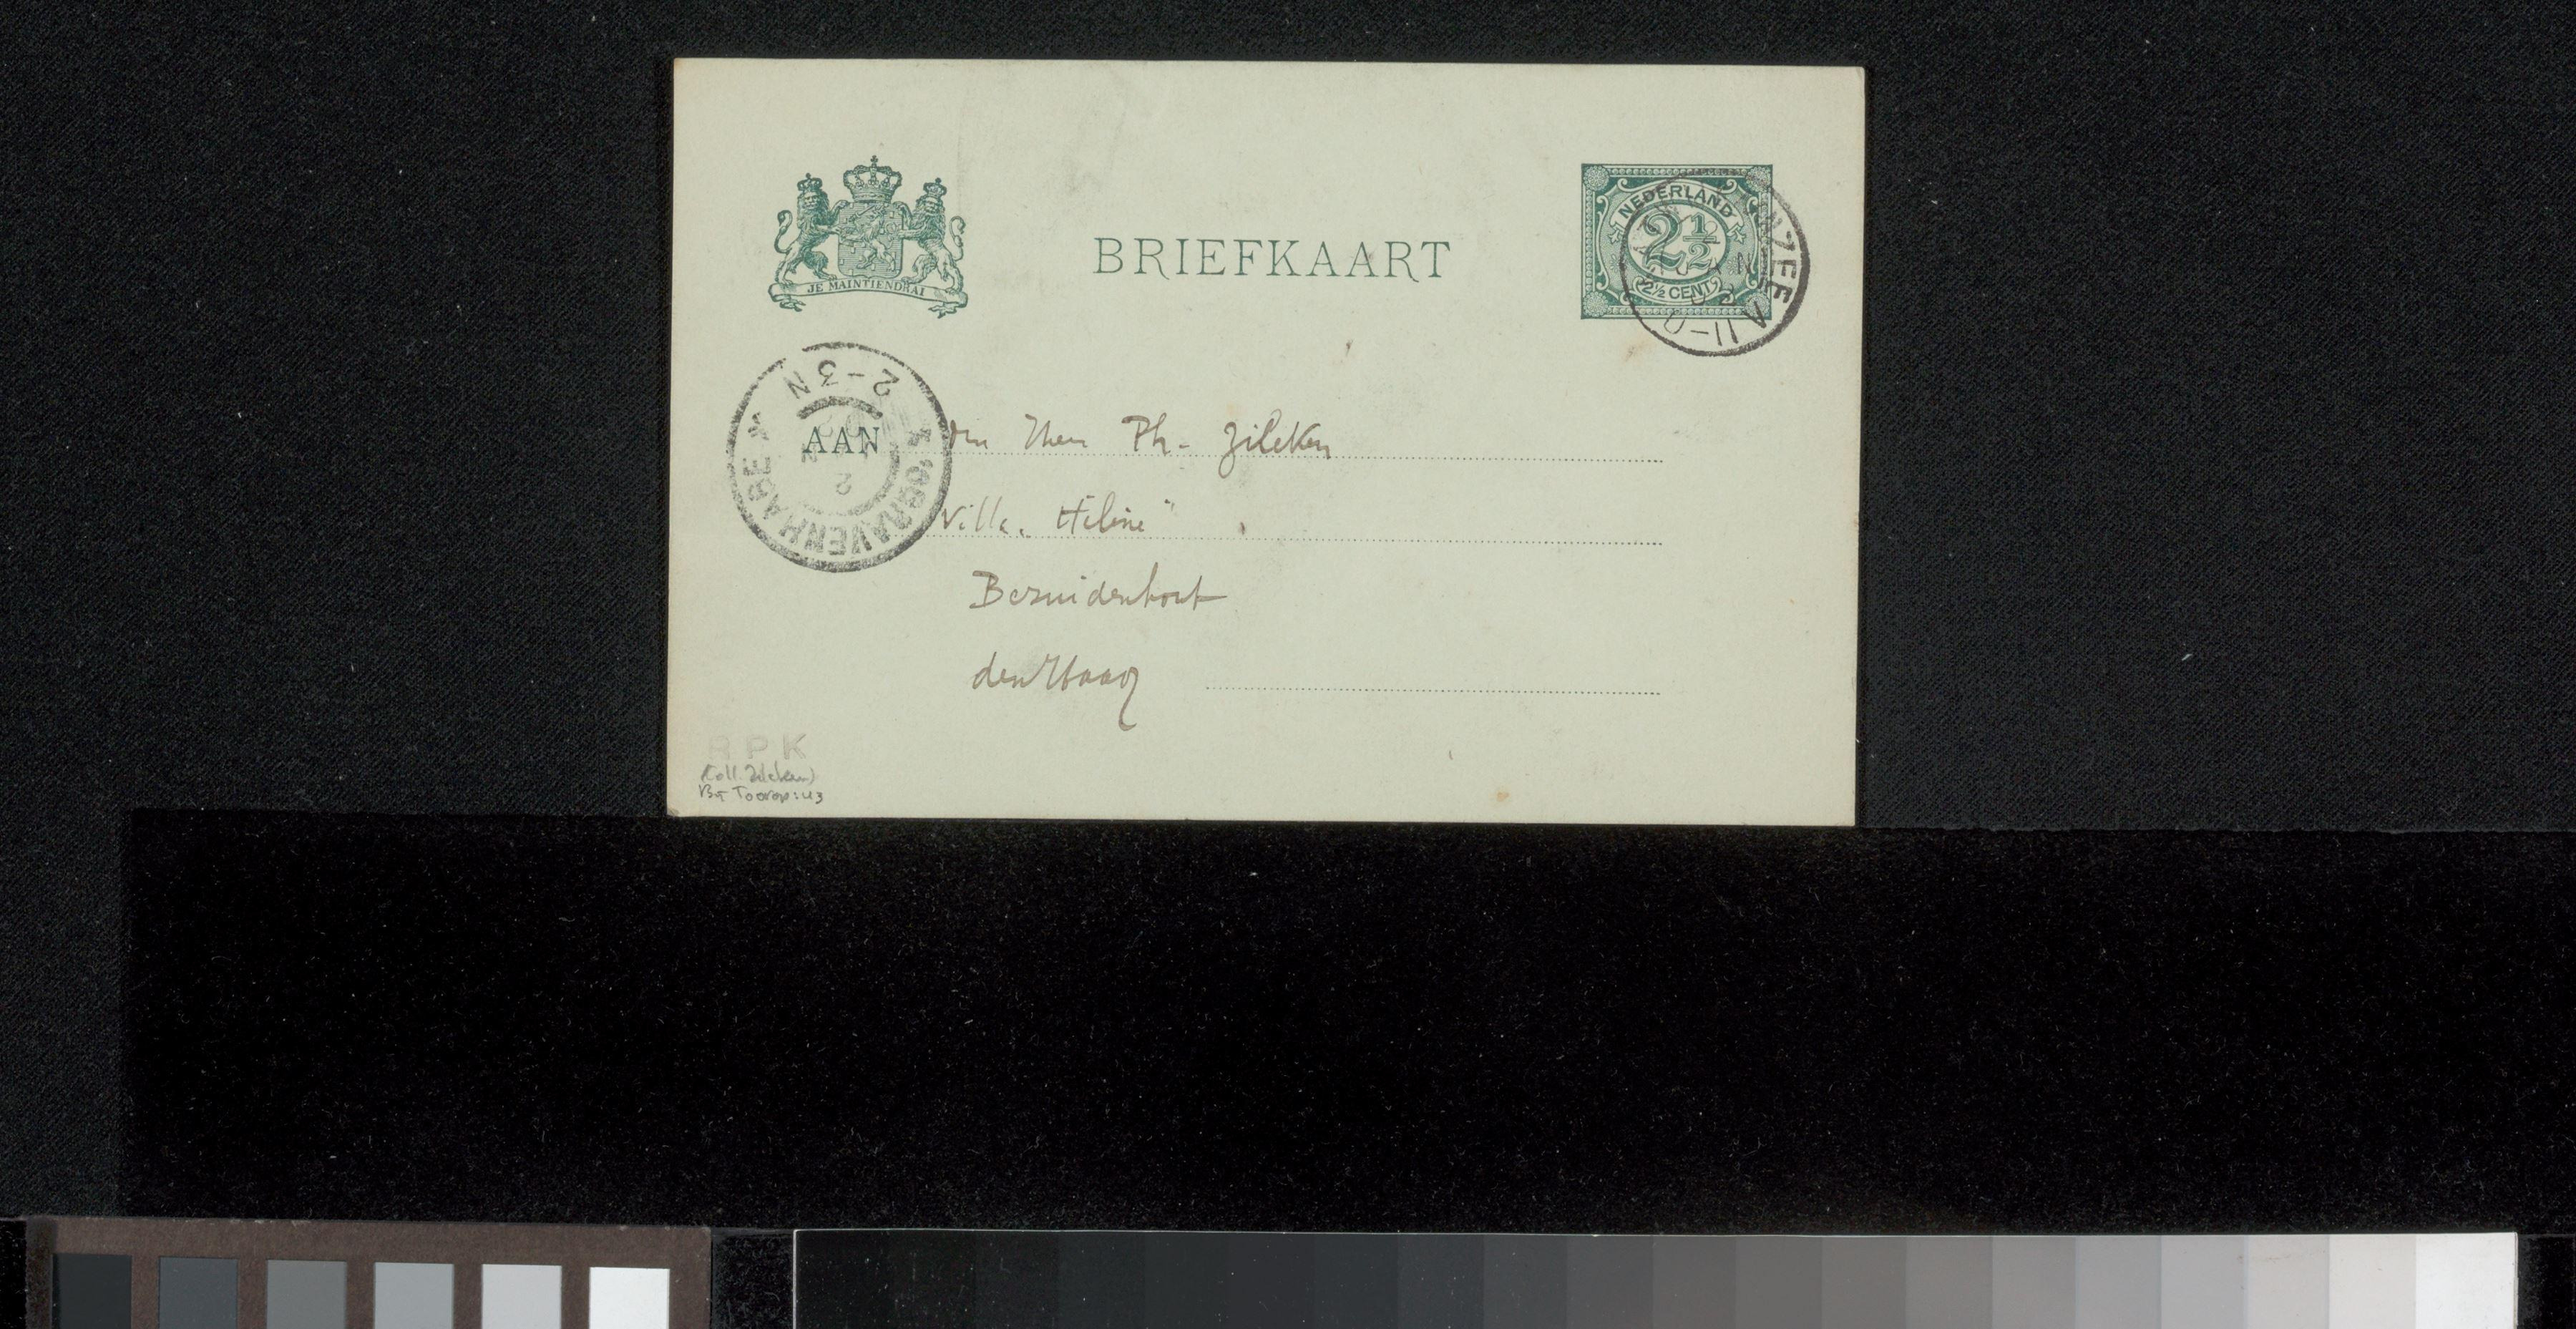 JE MAINTIENDRAI
BRIEFKAART
NEDERLAND
2½
2½ CENT
NZEE
JAN
02
11-V
2-3N
'SGRAVENHAGE
2
AAN
den Heer Ph- Zilcken
Villa. Hélène"
Bezuidenhout
den Haag
RPK
(Coll. Zilcken)
Br Toorop: 43